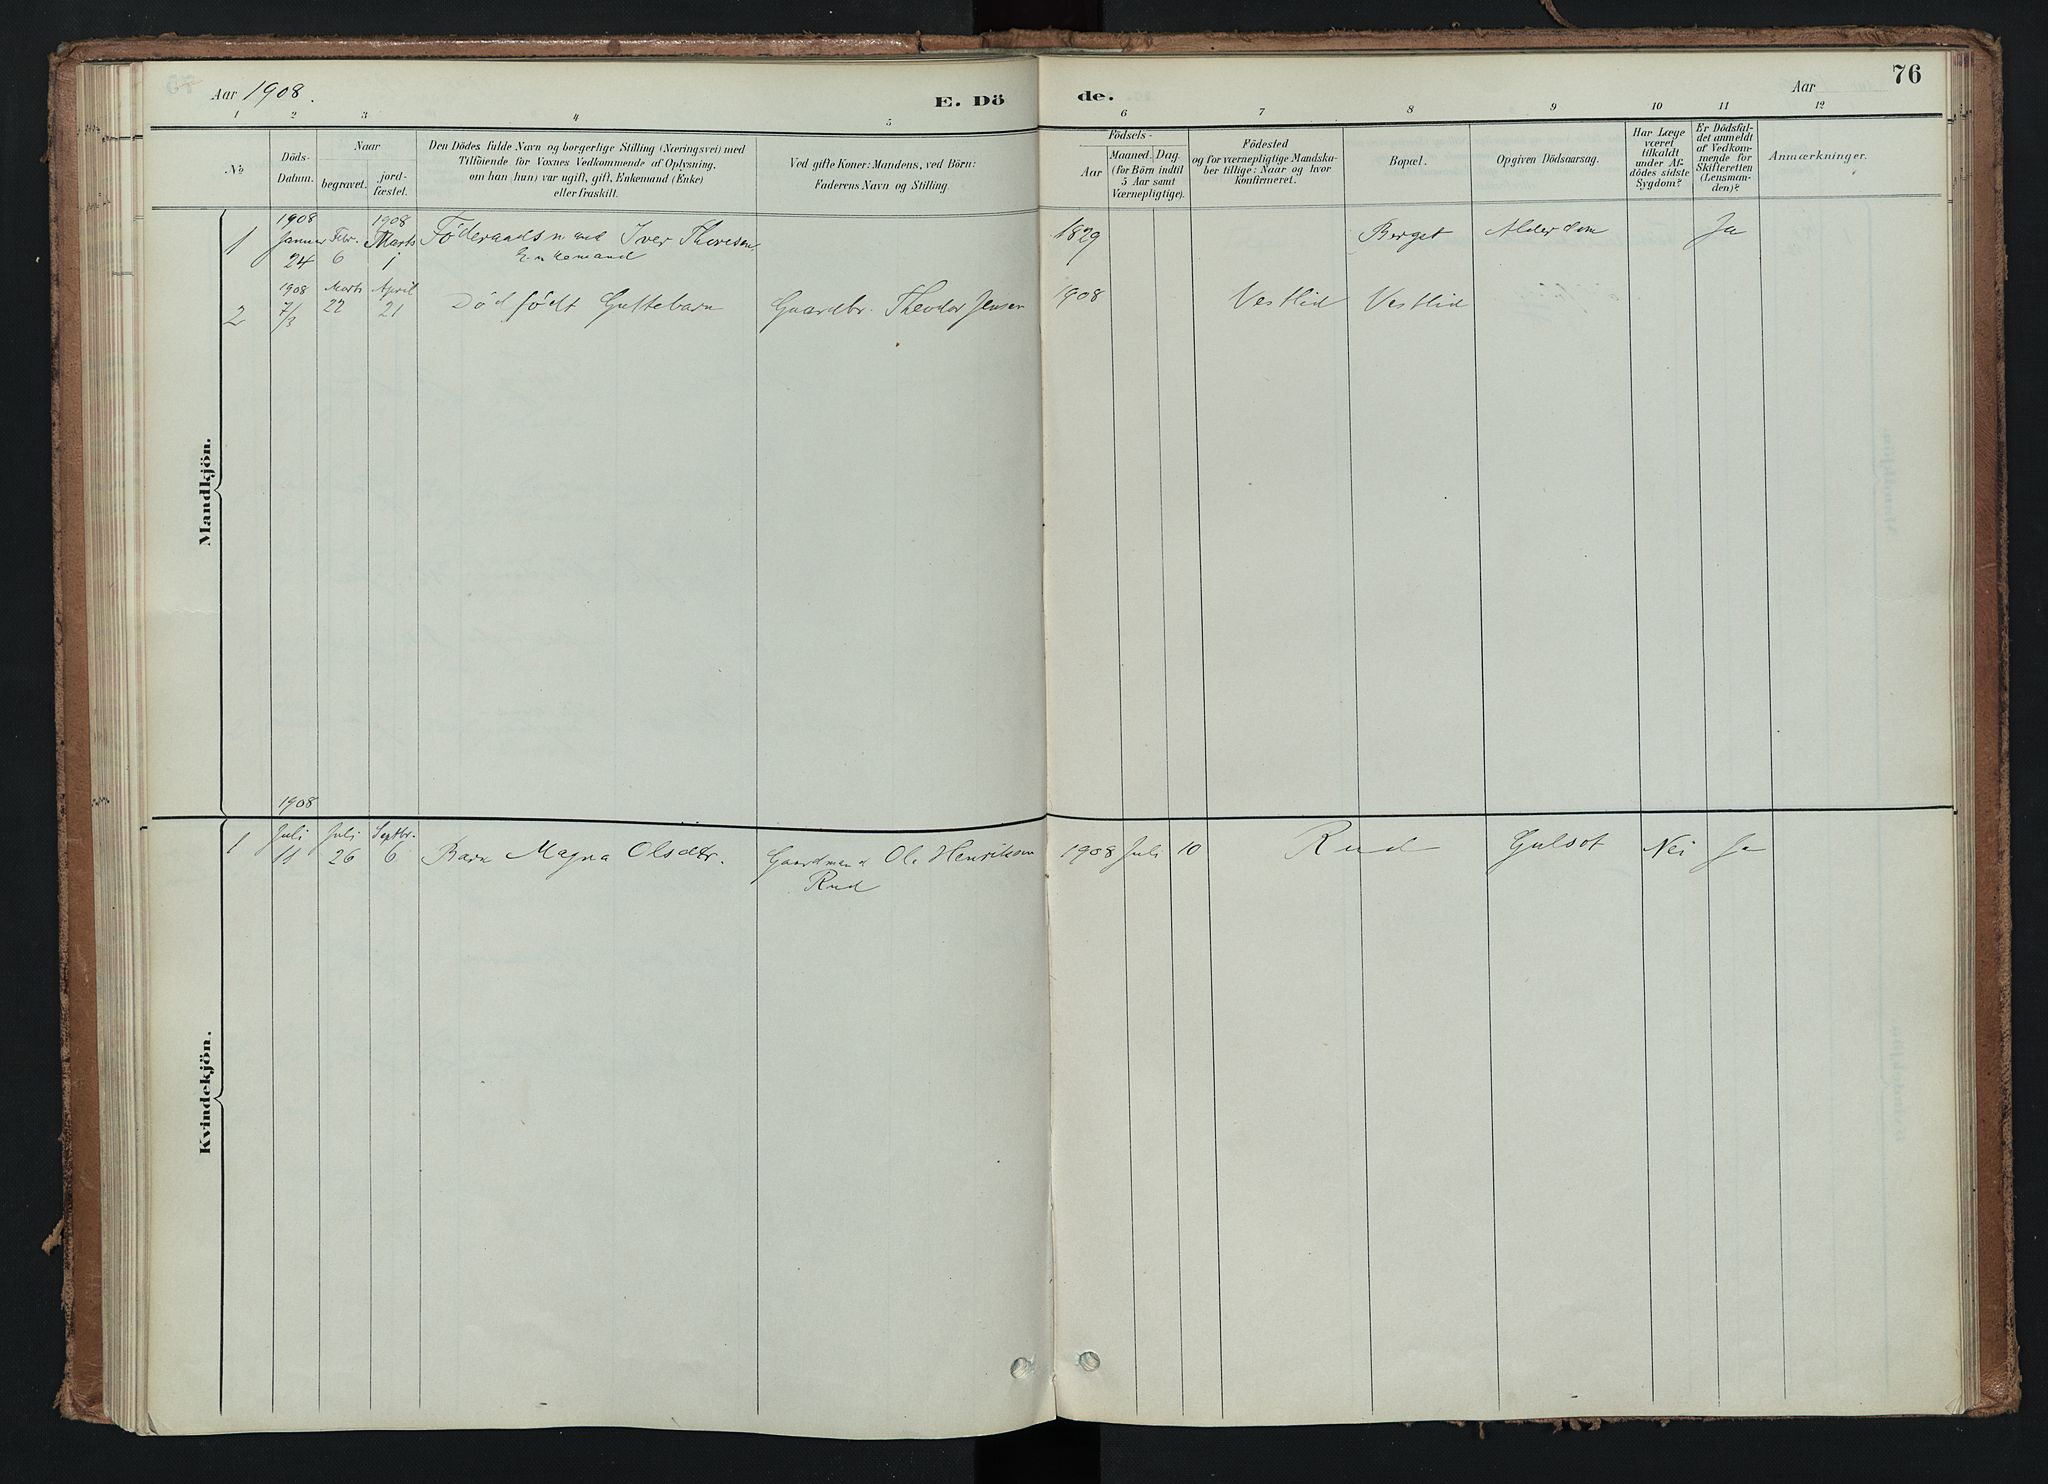 Aar 1908.
E. Dö
de.
Aar
76
1 2 3 4 5 6 7 8 9 10 11 12
No
Döds-
Datum.
Naar
begravet.
jord-
fæstet.
Den Dödes fulde Navn og borgerlige Stilling (Næringsvei) med
Tilföiende for Voxnes Vedkommende af Oplysning,
om han (hun) var ugift, gift, Enkemand (Enke)
eller fraskilt.
Ved gifte Koner: Mandens, ved Börn:
Faderens Navn og Stilling.
Födsels-
Aar
Maaned. Dag.
(for Börn indtil
5 Aar samt
Værnepligtige).
Födested
og for værnepligtige Mandska-
ber tillige: Naar og hvor
konfirmeret.
Bopæl.
Opgiven Dödsaarsag.
Har Læge
været
tilkaldt
under Af-
dödes sidste
Sygdom?
Er Dödsfal-
det anmeldt
af Vedkom-
mende for
Skifteretten
(Lensman-
den)?
Anmærkninger.
Mandkjön.
1908 1908
1 Januar Febr. Marts Föderaadsmand Iver Thoresen, 1829 Berget Alderdom Ja
24 6 1 Enkemand
1908 Marts April
2 7/3 22 21 Död födt Guttebarn Gaardbr. Theodor Jensen 1908 Vestlid Vestlid
Kvindekjön.
1908
1 Juli Juli Septbr.
11 26 6 Barn Magna Olsdtr. Gaardmand Ole Henriksen 1908 Juli 10 Rud Gulsot Nei Ja
Rud